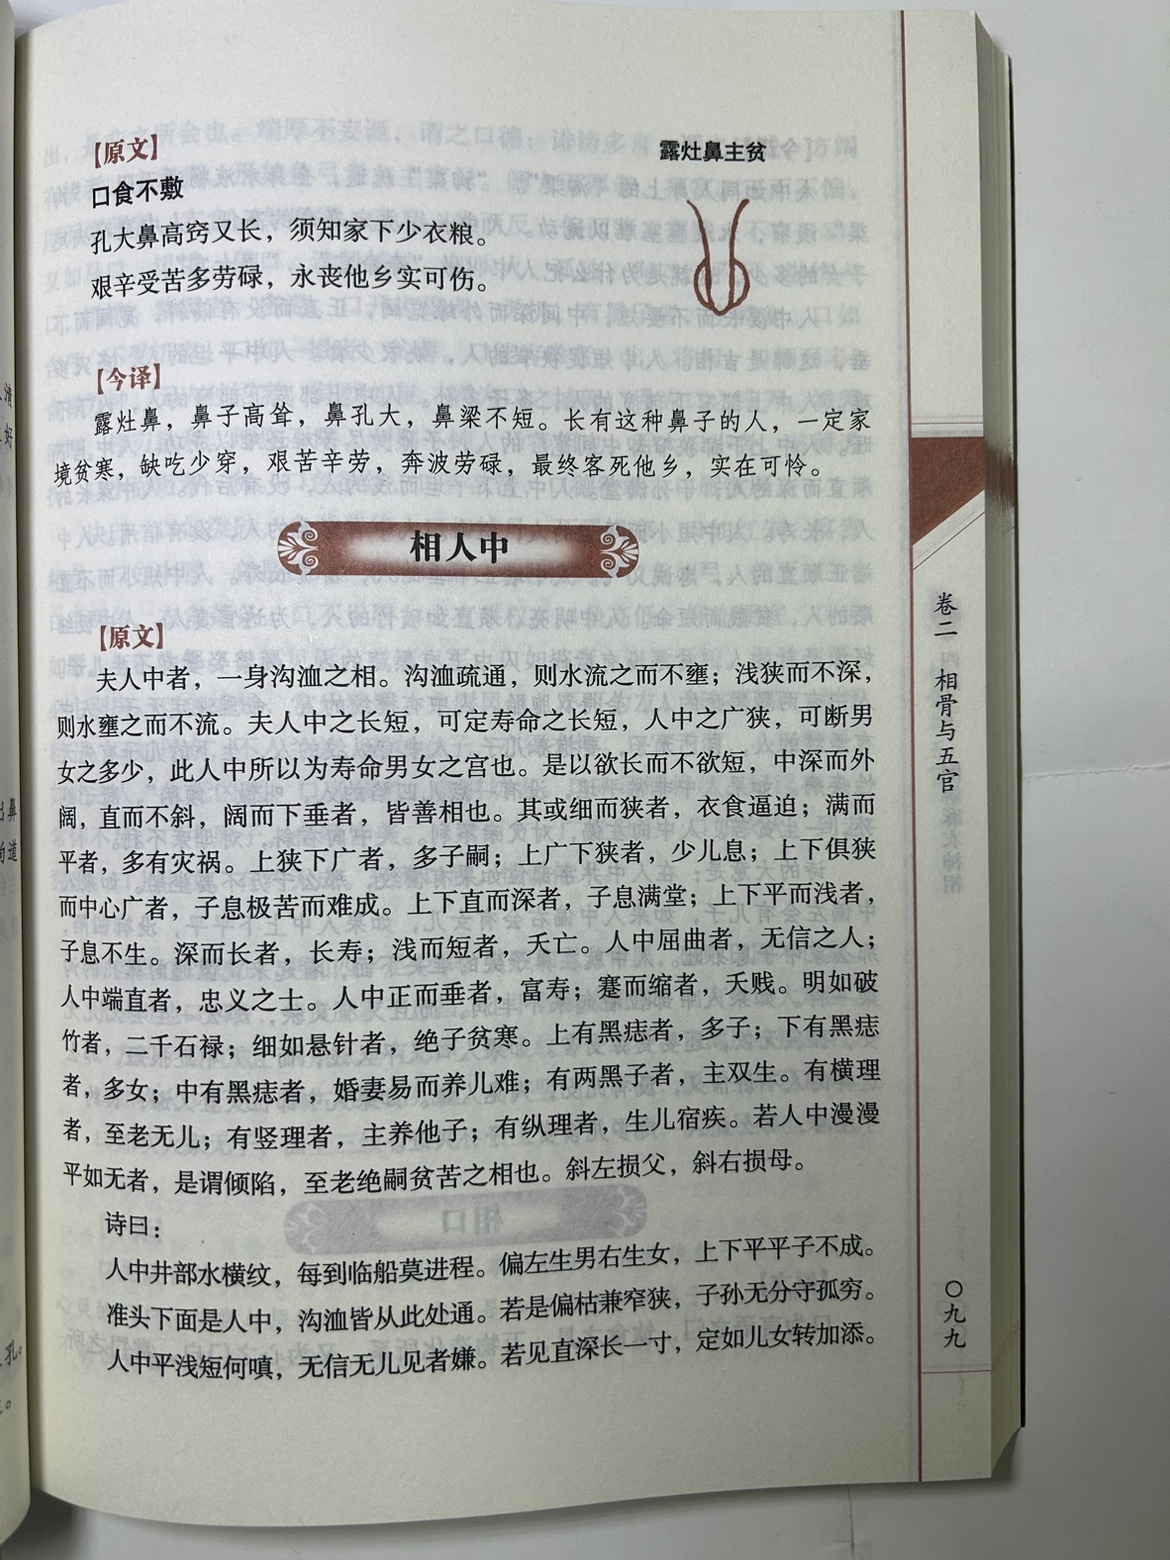 【原文】
露灶鼻主贫
口食不敷
孔大鼻高窍又长，须知家下少衣粮。
艰辛受苦多劳碌，永丧他乡实可伤。
【今译】
露灶鼻，鼻子高耸，鼻孔大，鼻梁不短。长有这种鼻子的人，一定家
境贫寒，缺吃少穿，艰苦辛劳，奔波劳碌，最终客死他乡，实在可怜。
相人中
【原文】
夫人中者，一身沟洫之相。沟洫疏通，则水流之而不壅；浅狭而不深，
则水壅之而不流。夫人中之长短，可定寿命之长短，人中之广狭，可断男
女之多少，此人中所以为寿命男女之宫也。是以欲长而不欲短，中深而外
阔，直而不斜，阔而下垂者，皆善相也。其或细而狭者，衣食逼迫；满而
平者，多有灾祸。上狭下广者，多子嗣；上广下狭者，少儿息；上下俱狭
而中心广者，子息极苦而难成。上下直而深者，子息满堂；上下平而浅者，
子息不生。深而长者，长寿；浅而短者，夭亡。人中屈曲者，无信之人；
人中端直者，忠义之士。人中正而垂者，富寿；蹇而缩者，夭贱。明如破
竹者，二千石禄；细如悬针者，绝子贫寒。上有黑痣者，多子；下有黑痣
者，多女；中有黑痣者，婚妻易而养儿难；有两黑子者，主双生。有横理
者，至老无儿；有竖理者，主养他子；有纵理者，生儿宿疾。若人中漫漫
平如无者，是谓倾陷，至老绝嗣贫苦之相也。斜左损父，斜右损母。
诗曰：
人中井部水横纹，每到临船莫进程。偏左生男右生女，上下平平子不成。
准头下面是人中，沟洫皆从此处通。若是偏枯兼窄狭，子孙无分守孤穷。
人中平浅短何嗔，无信无儿见者嫌。若见直深长一寸，定如儿女转加添。
卷二 相骨与五官
〇九九